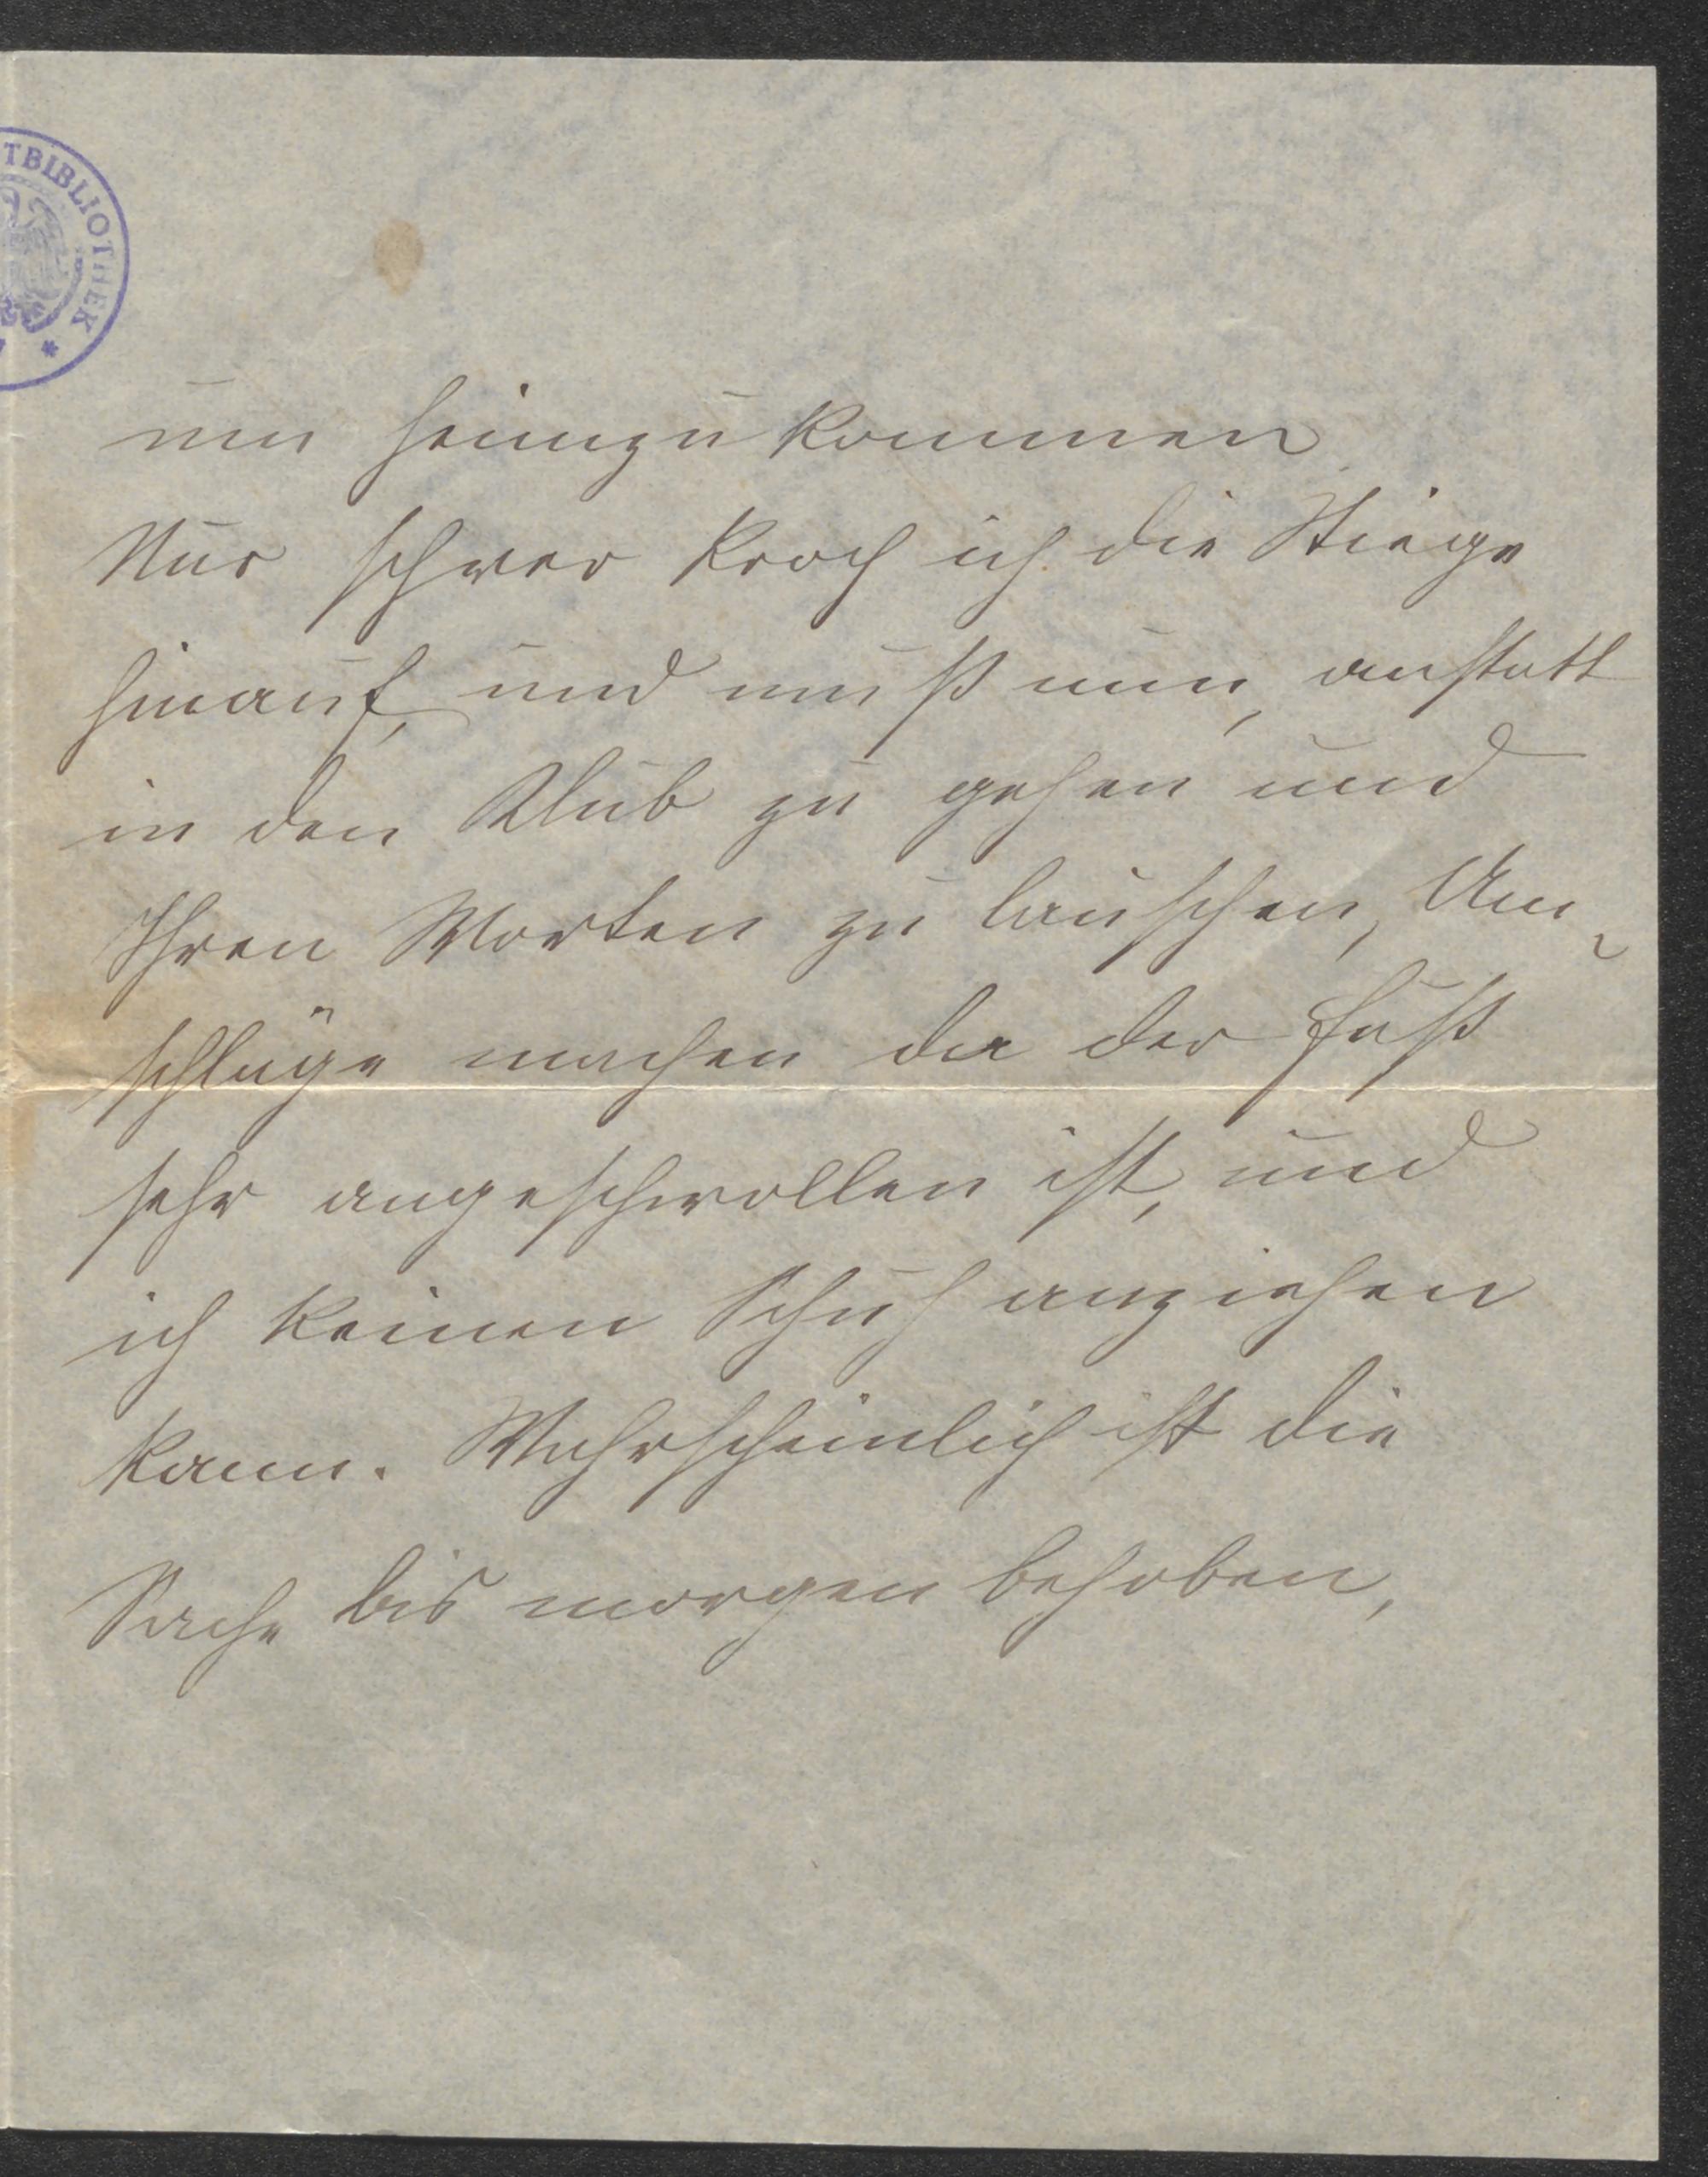 TBIBLIOTHEK
um heimzukommen.
Nur schwer kroch ich die Stiege
hinauf, und muß nun, anstatt
in den Klub zu gehen und
Ihren Worten zu lauschen, Um-
schläge machen da der Fuß
sehr angeschwollen ist, und
ich keinen Schuh anziehen
kann. Wahrscheinlich ist die
Sache bis morgen behoben,